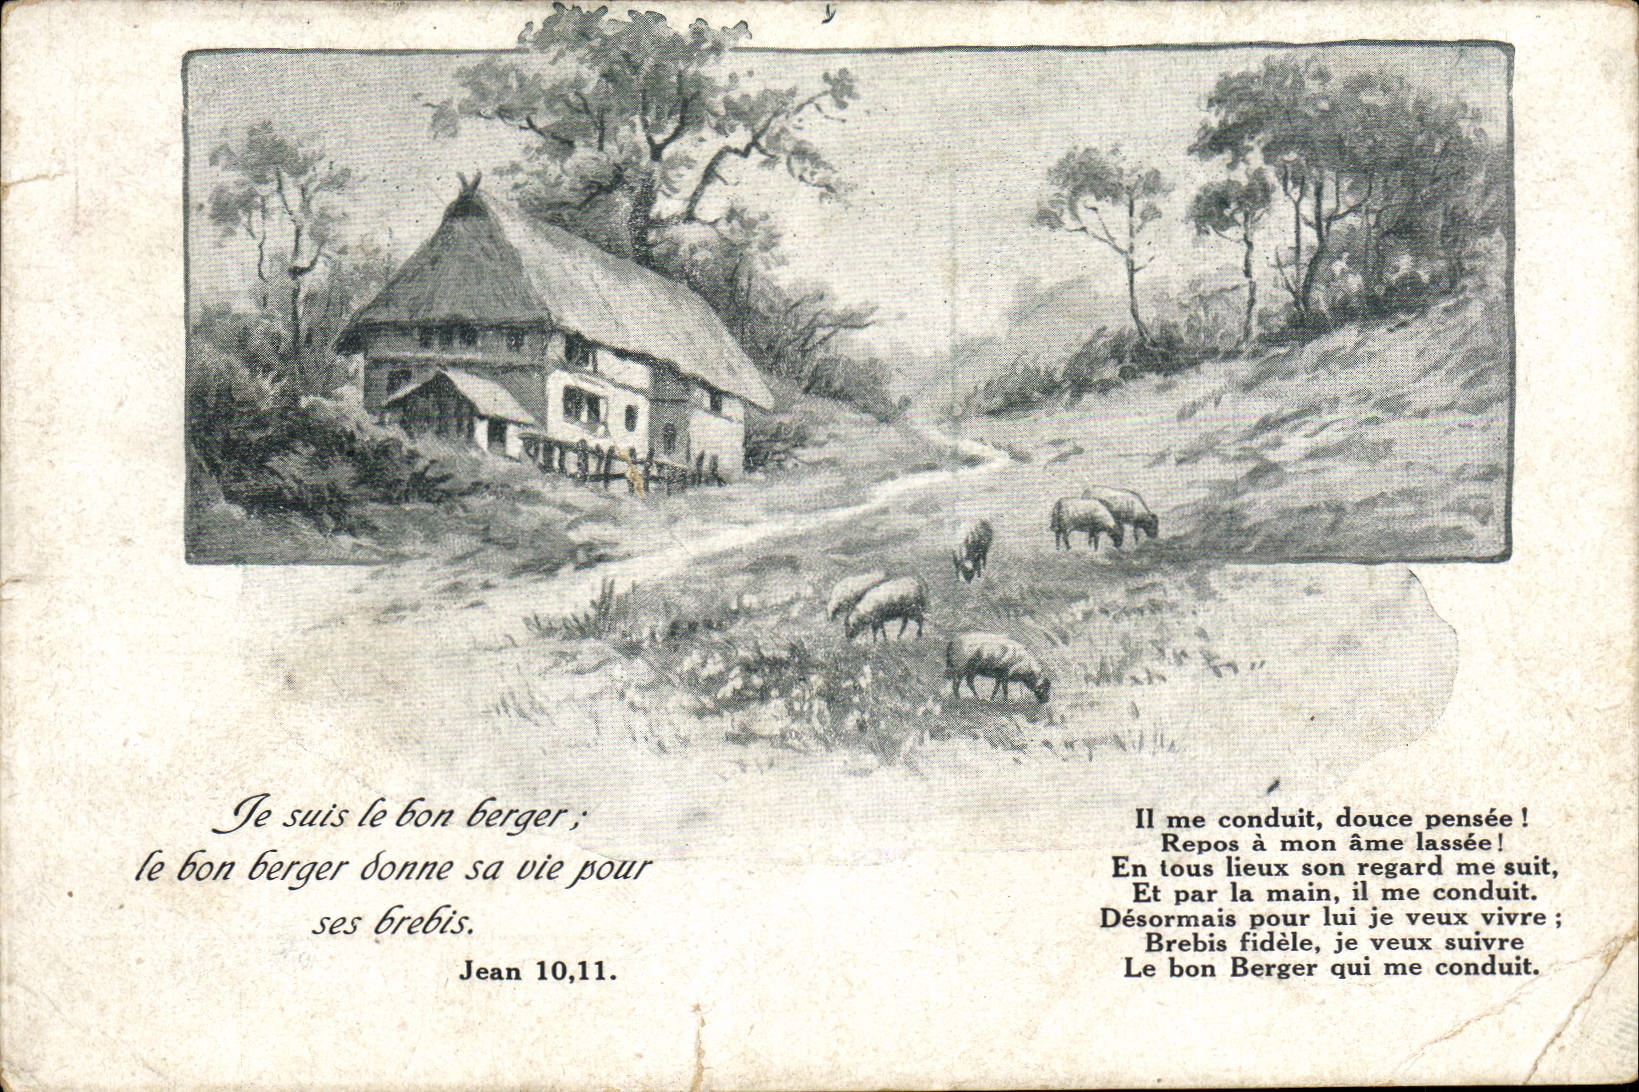 Je suis le bon berger ;
le bon berger donne sa vie pour
ses brebis.
Jean 10,11.
Il me conduit, douce pensée !
Repos à mon âme lassée!
En tous lieux son regard me suit,
Et par la main, il me conduit.
Désormais pour lui je veux vivre ;
Brebis fidèle, je veux suivre
Le bon Berger qui me conduit.